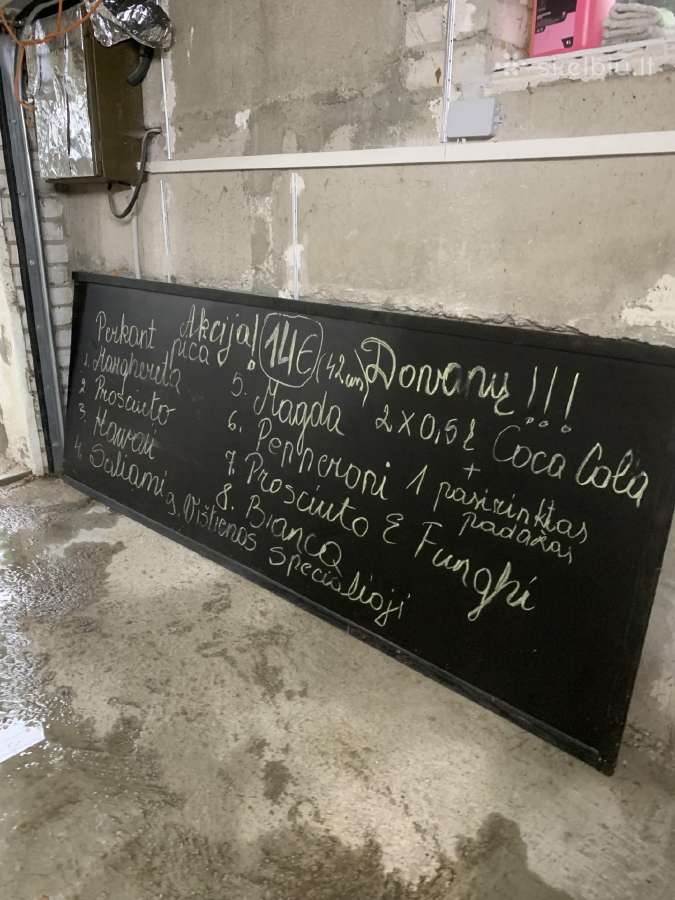 skelbiu.lt
Akcija! 14€ (42cm) Dovanų!!!
Perkant picą
1. Margherita
2. Prosciuto
3. Hawaii
4. Saliami
5. Magda
6. Pepperoni
7. Prosciuto E Funghi
8. Bianca
9. Vištienos Specialioji
2x0,5l Coca Cola
+
1 pasirinktas
padažas